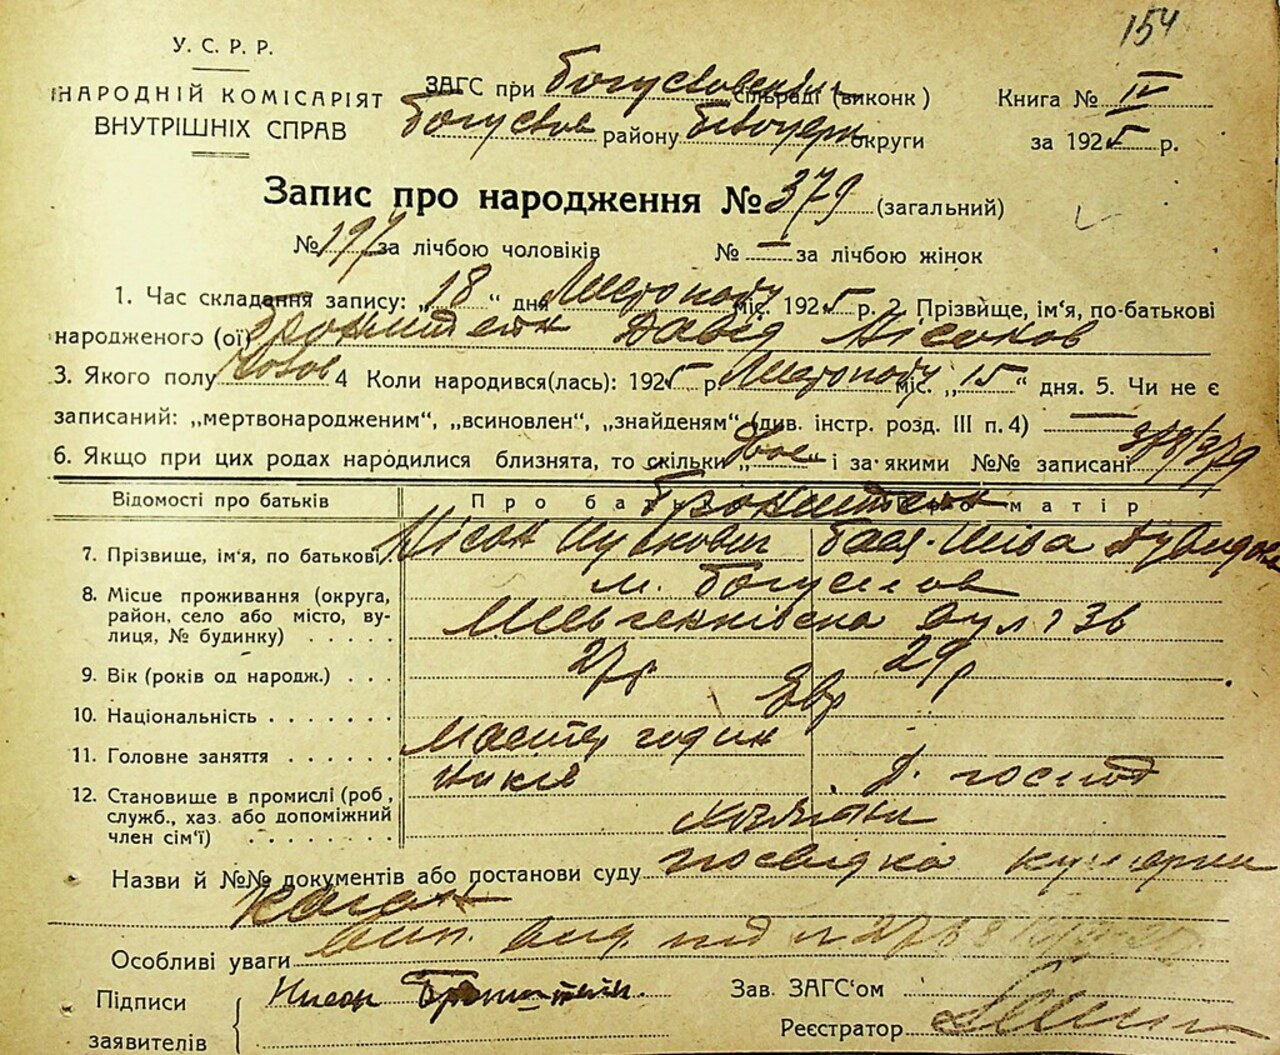 154
У. С. Р. Р.
НАРОДНІЙ КОМІСАРІЯТ
ВНУТРІШНІХ СПРАВ
ЗАГС при сільраді (виконк)
Богуслов району Білоцерк округи
Книга № IV
за 1925 р.
Запис про народження № 379 (загальний)
№ 197 за лічбою чоловіків № — за лічбою жінок
1. Час складання запису: „18“ дня Листопаду міс. 1925 р. 2. Прізвище, ім‘я, по-батькові
народженого (ої) Бронштейн Давід Нісонов
3. Якого полу 4 Коли народився(лась): 1925 р. Листопаду міс. „15“ дня. 5. Чи не є
записаний: „мертвонародженим“, „всиновлен“, „знайденям“ (див. інстр. розд. III п. 4) —
6. Якщо при цих родах народилися близнята, то скільки „двоє“ і за якими №№ записані 378/379
Відомості про батьків Про батька Про матір
Бронштейн
7. Прізвище, ім‘я, по батькові Нісон Бася-Шіва
8. Місце проживання (округа, район, село або місто, вулиця, № будинку) м. Богуслов
Шевченківська вул. 36
9. Вік (років од народж.) 27 р 29 р
10. Національність Євр
11. Головне заняття Мастер годин
д. господ
12. Становище в промислі (роб., служб., хаз. або допоміжний член сім‘ї)
Назви й №№ документів або постанови суду посвідка
Каган
Особливі уваги вид.
Підписи заявителів Нисон Бронштейн.
Зав. ЗАГС‘ом
Реєстратор